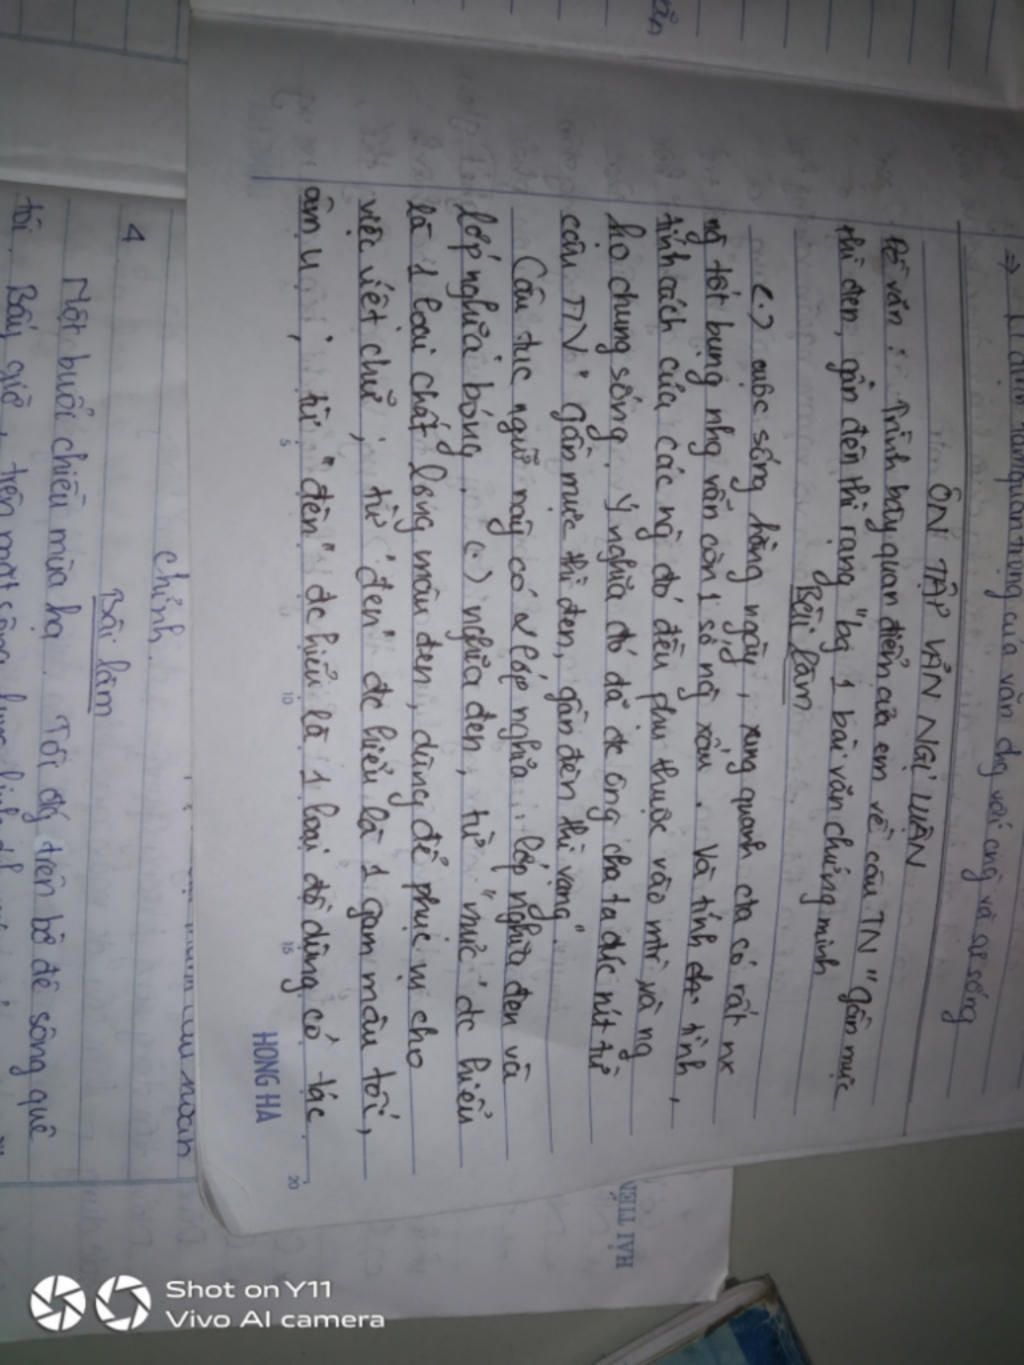 ÔN TẬP VĂN NGHỊ LUẬN
Đề văn : Trình bày quan điểm của em về câu TN "gần mực
thì đen, gần đèn thì rạng" bg 1 bài văn chứng minh
Bài làm
(.) cuộc sống hằng ngày, xung quanh cta có rất nx
ng tốt bụng nhg vẫn còn 1 số ng xấu. Và tính tình,
tính cách của các ng đó đều phụ thuộc vào mtr và ng
họ chung sống. Ý nghĩa đó đã đc ông cha ta đúc rút từ
câu TN" gần mực thì đen, gần đèn thì rạng".
Câu tục ngữ này có 2 lớp nghĩa: lớp nghĩa đen và
lớp nghĩa bóng. (.) nghĩa đen, từ "mực" đc hiểu
là 1 loại chất lỏng màu đen, dùng để phục vụ cho
việc viết chữ, từ "đen" đc hiểu là 1 gam màu tối,
âm u, từ "đèn" đc hiểu là 1 loại đồ dùng có tác
HONG HA
5 10 15 20
HẢI TIẾN
chính.
4
Bài làm
Một buổi chiều mùa hạ. Tôi đg trên bờ đê sông quê
tôi. Bấy giờ, trên mặt sông
Shot on Y11
Vivo AI camera